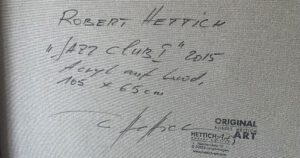 ROBERT HETTICH
"JAZZ CLUB I" 2015
Acryl auf Lwd,
105 x 65 cm
ORIGINAL
ROBERT HETTICH
ART
HETTICH